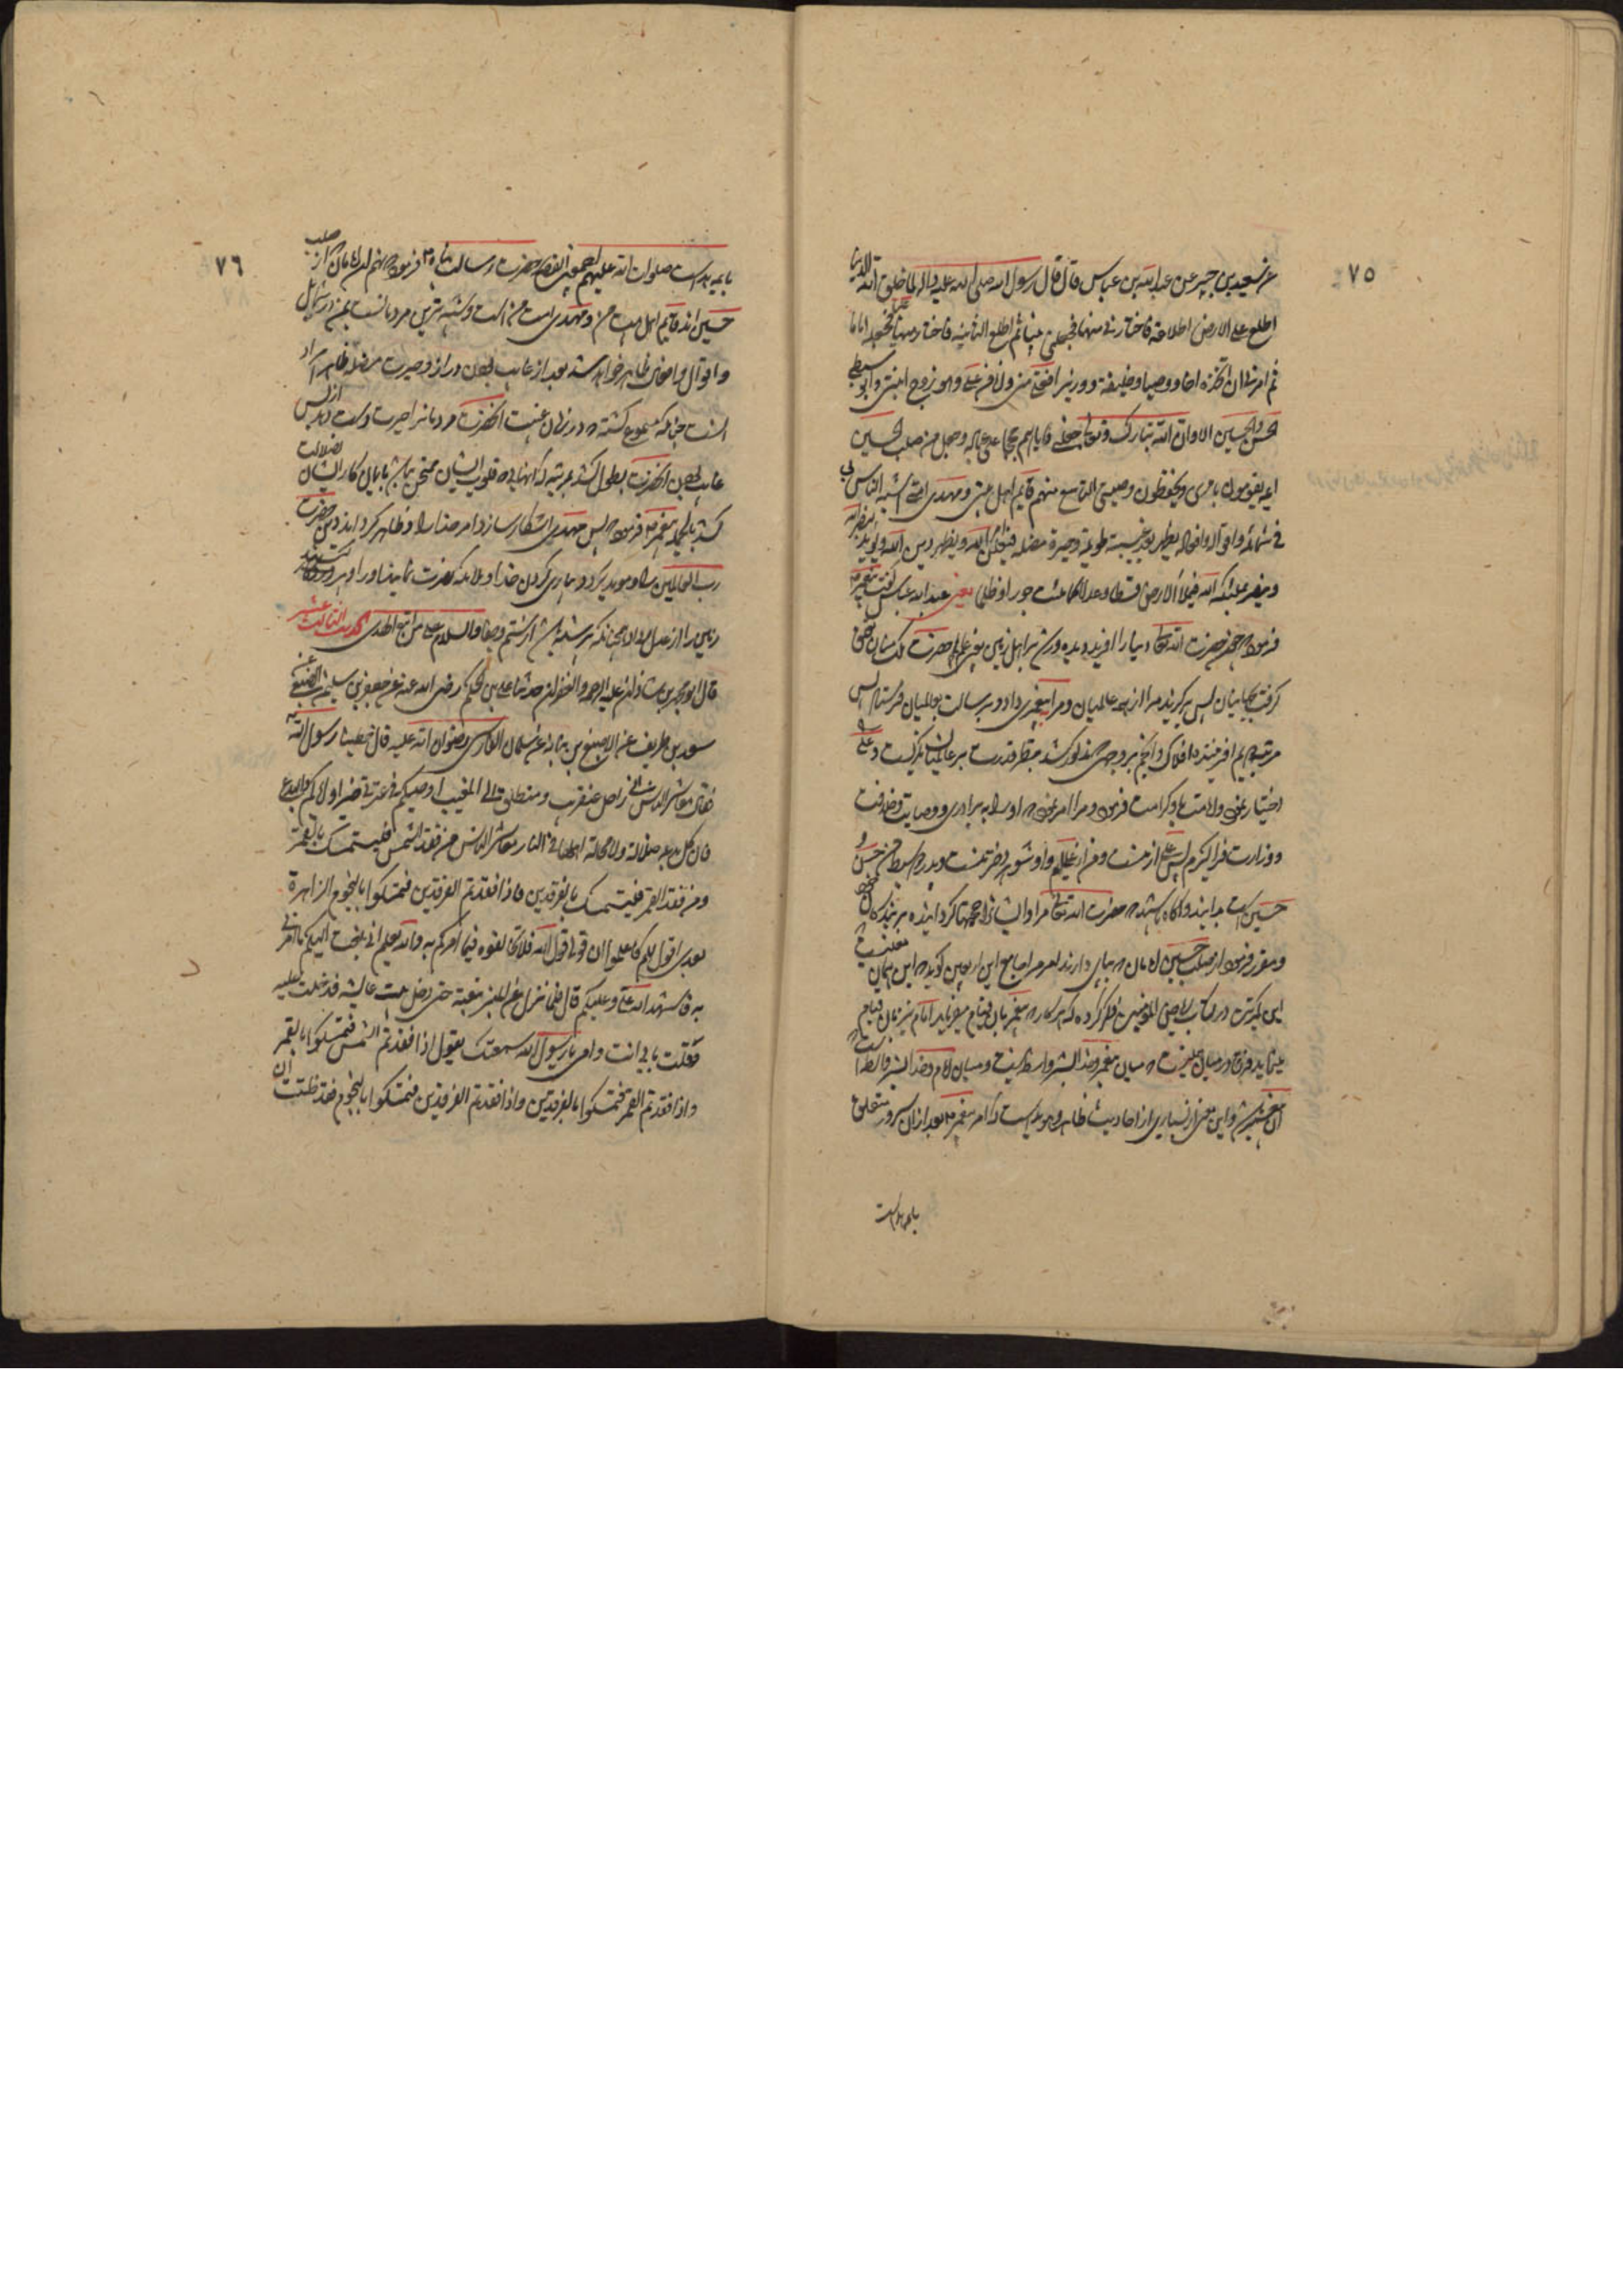 ٧٥
عن سعید بن جبیر عن عبدالله بن عباس قال قال رسول الله صلی الله علیه واله لما خلق الله الدنیا
اطلع علی الارض اطلاعة فاختارنی منها فجعلنی نبیا ثم اطلع الثانیة فاختار منها علیا فجعله اماما
ثم امرنی ان اتخذه اخا و وصیا و خلیفة و وزیرا فعلی منی وانا من علی وهو زوج ابنتی وابو سبطی
الحسن والحسین الا وان الله تبارک وتعالی جعلنی وایاهم حججا علی عباده وجعل من صلب الحسین
ائمة یقومون بامری ویحفظون وصیتی التاسع منهم قایم اهل بیتی ومهدی امتی اشبه الناس بی
فی شمائله واقواله وافعاله یظهر بعد غیبة طویلة وحیرة مضلة فیعلن امر الله ویظهر دین الله ویؤید بنصر الله
وینصر بملئکة الله فیملأ الارض قسطا وعدلا کما ملئت جورا وظلما یعنی عبدالله عباس گفت پیغمبر
فرمود چون حضرت الله تعالی دنیا را افرید
گرفت پس برگزید مرا از همه عالمیان ومرا پیغمبری داد و برسالت بعالمیان فرستاد پس
مرتبه دیم
اختیار نمود و امامت و کرامت فرمود و مرا امر نمود که او را به برادری و وصایت و خلافت
و وزارت فرا گیرم پس علی از منست و من از علیم و او شوهر دختر منست و پدر دو سبط من حسن و
حسین است بدانید و آگاه باشید که حضرت الله تعالی مرا و ایشان را حجتها گردانیده بر بندگان خود
و مقرر فرمود از صلب حسین امامان که بپای دارند امر مرا جامع این اربعین گوید که این همان
ذکر کرده که هر کار که پیغمبر بان قیام میفرماید امام نیز بان قیام
مینماید و فرق در میان که میان پیغمبر و خدا بشر واسطه نیست و میان امام و خدا بشر واسطه است
آن پیغمبر و این معنی از بسیاری از احادیث ظاهر و هویداست که امر پیغمبر بعد از ان سرور متعلق
بایمه هداست
٧٦
بایمه هداست صلوات الله علیهم اجمعین القصه حضرت رسالت پناه فرمود که نهم ان امامان که از صلب
حسین اند قایم اهل بیت من و مهدی امت من است و شبیه ترین مردمانست بمن در شمایل
و اقوال و افعال ظاهر خواهد شد بعد از غایب بودن دراز و حیرت مضله
انست چنانکه در زمان غیبت انحضرت مردمانرا حیرت دست دهد از بس
غایب بودن انحضرت بطول کشد بضلالت
کشد بالجمله پیغمبر فرمود پس مهدی اشکار سازد امر خدا را و ظاهر گرداند دین حضرت
رب العالمین را و موید گردد بیاری کردن خدا و ملائکه نصرت نمایند او را
زمین را از عدل و داد همچنانکه پر شده باشد از ستم و جفا والسلام علی من اتبع الهدی الحدیث الثالث عشر
قال ابومحمد بن شاذان علیه الرحمه والغفران حدثنا علی بن الحکم رضی الله عنه عن جعفر بن سلیمان الضبعی عن
سعد بن طریف عن الاصبغ بن نباته عن سلمان الفارسی رضوان الله علیه قال خطبنا رسول الله
فقال معاشر الناس انی راحل عنقریب ومنطلق الی المغیب اوصیکم فی عترتی خیرا وایاکم والبدع
فان کل بدعة ضلالة ولا محالة اهلها فی النار معاشر الناس من فقد الشمس فلیتمسک بالقمر
ومن فقد القمر فلیتمسک بالفرقدین فاذا فقدتم الفرقدین فتمسکوا بالنجوم الزاهرة
بعدی اقول لکم فاعلموا ان قولی قول الله فلا تخالفوه فیما امرکم به والله یعلم انی بلغت الیکم ما امرنی
به فاشهد الله علی وعلیکم قال فلما نزل عن المنبر تبعته حتی دخل بیت عایشه فدخلت علیه
فقلت بابی انت وامی یا رسول الله سمعتک تقول اذا فقدتم الشمس فتمسکوا بالقمر
واذا فقدتم القمر فتمسکوا بالفرقدین واذا فقدتم الفرقدین فتمسکوا بالنجوم فقد ظننت ان